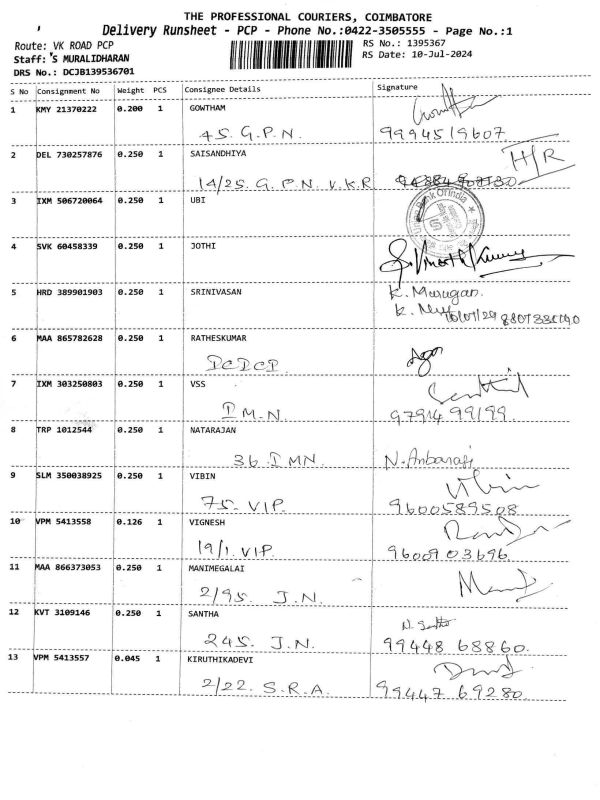 THE PROFESSIONAL COURIERS, COIMBATORE
Delivery Runsheet - PCP - Phone No.:0422-3505555 - Page No.:1
Route: VK ROAD PCP
RS No.: 1395367
Staff: 'S MURALIDHARAN
RS Date: 10-Jul-2024
DRS No.: DCJB139536701
S No Consignment No Weight PCS Consignee Details Signature
1 KMY 21370222 0.200 1 GOWTHAM
45. G.P.N. 9994519607.
2 DEL 730257876 0.250 1 SAISANDHIYA H/R
14/25. G.P.N. V.K.R
3 IXM 506720064 0.250 1 UBI
Union Bank Of India
4 SVK 60458339 0.250 1 JOTHI
5 HRD 389901903 0.250 1 SRINIVASAN K. Murugan.
6 MAA 865782628 0.250 1 RATHESKUMAR
DCDCP
7 IXM 303250803 0.250 1 VSS Senthil
I M.N. 97914 99199.
8 TRP 1012544 0.250 1 NATARAJAN
36 I MN. N. Anbarasi
9 SLM 350038925 0.250 1 VIBIN Vibin
75. V.I.P. 9600589508
10 VPM 5413558 0.126 1 VIGNESH
19/1. V.I.P. 9600903696.
11 MAA 866373053 0.250 1 MANIMEGALAI
2/95. J.N.
12 KVT 3109146 0.250 1 SANTHA
245. J.N. 99448 68860.
13 VPM 5413557 0.045 1 KIRUTHIKADEVI
2/22. S.R.A. 99447 69280.